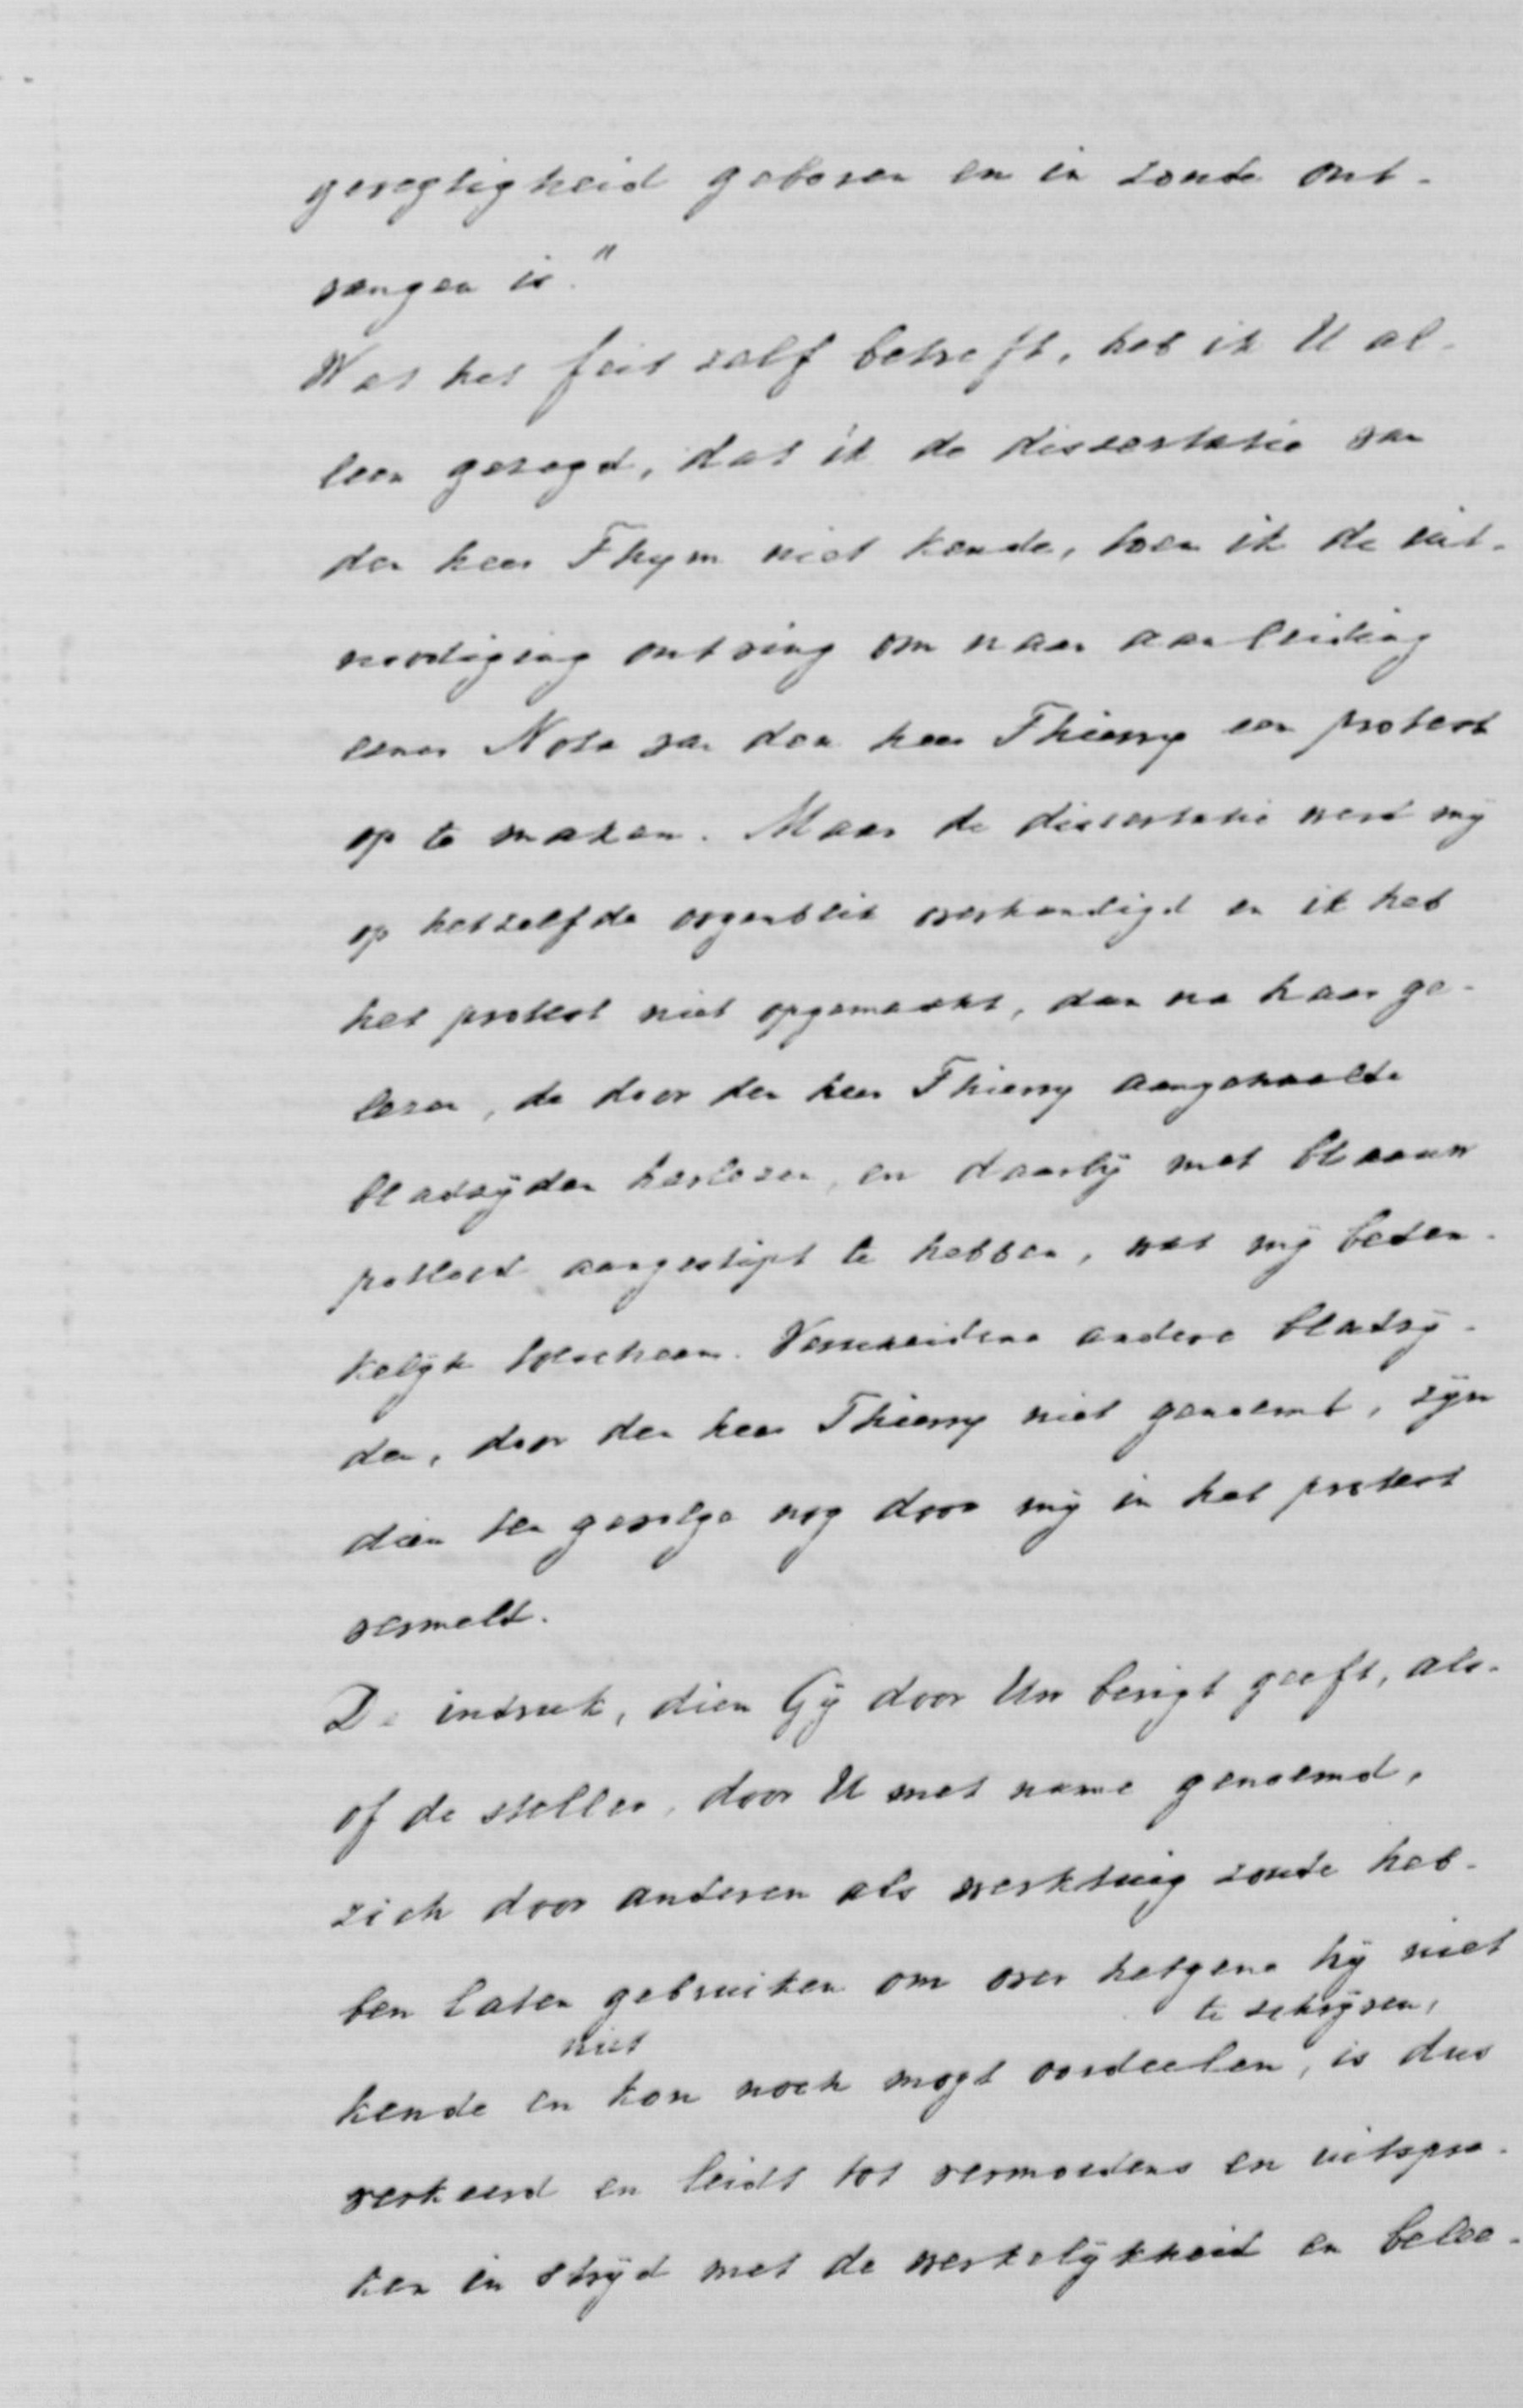 geregtigheid geboren en in zonde ont-
vangen is."
Wat het feit zelf betreft, heb ik U al-
leen gezegd, dat ik de dissertatie van
den heer Thym niet kende, toen ik de uit-
noodiging ontving om naar aanleiding
eener Nota van den heer Thierry een protest
op te maken. Maar de dissertatie werd mij
op hetzelfde oogenblik overhandigd en ik heb
het protest niet opgemaakt, dan na haar ge-
lezen, de door den heer Thierry aangehaalde
bladzijden herlezen, en daarbij met blaauw
potlood aangestipt te hebben, wat mij beden-
kelijk toescheen. Verscheidene andere bladzij-
den, door den heer Thierry niet genoemd, zijn
dien ten gevolge nog door mij in het protest
vermeld.
De indruk, dien Gij door Uw berigt geeft, als-
of de steller, door U met name genoemd,
zich door anderen als werktuig zoude heb-
ben laten gebruiken om over hetgene hij niet
te schrijven,
niet
kende en kon noch mogt oordeelen, is dus
verkeerd en leidt tot vermoedens en uitspra-
ken in strijd met de werkelijkheid en belee-